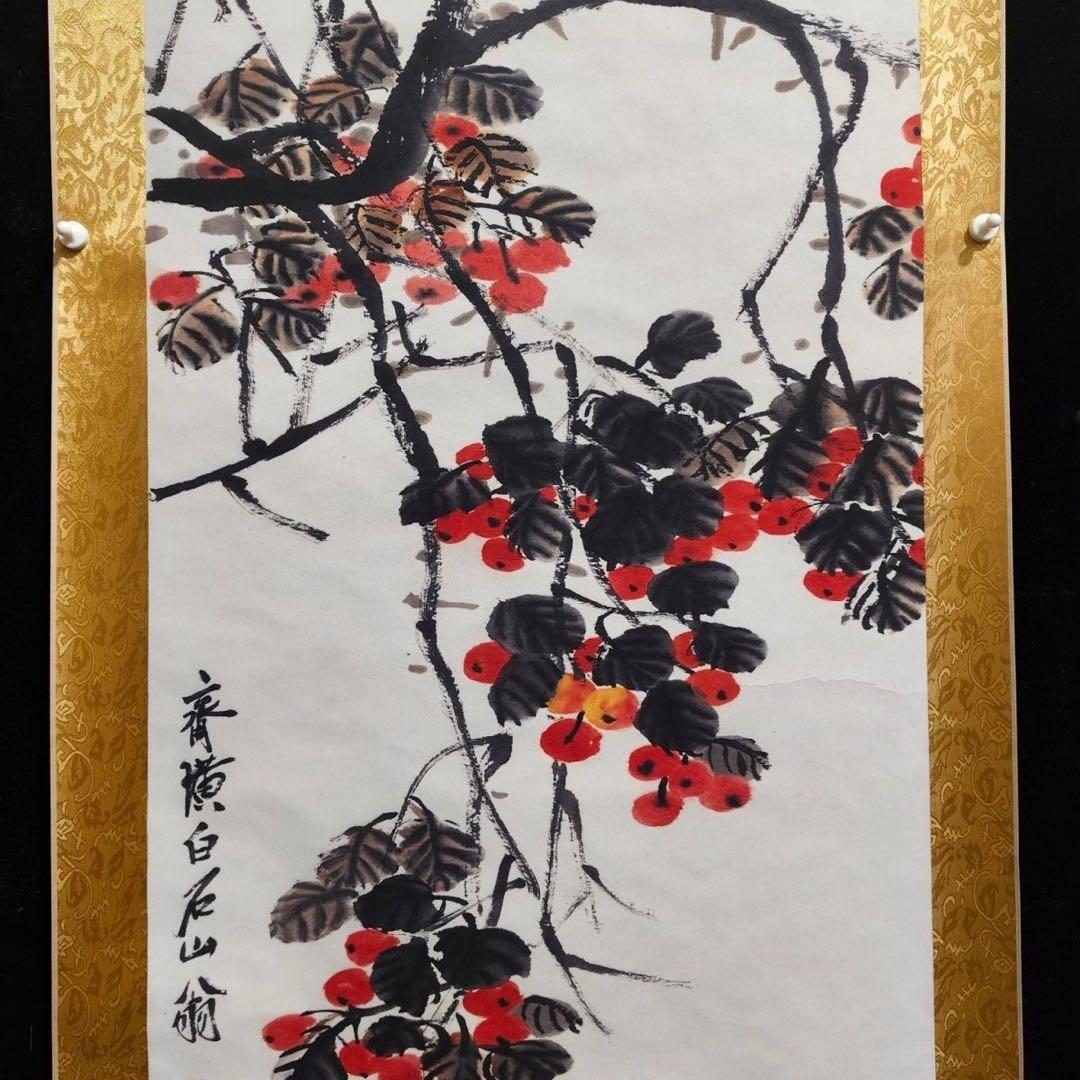 齊璜白石山翁